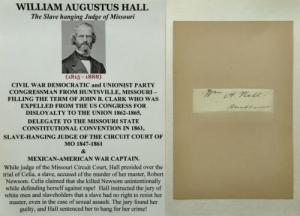 WILLIAM AUGUSTUS HALL
The Slave hanging Judge of Missouri
(1815 - 1888)
CIVIL WAR DEMOCRATIC and UNIONIST PARTY
CONGRESSMAN FROM HUNTSVILLE, MISSOURI –
FILLING THE TERM OF JOHN B. CLARK WHO WAS
EXPELLED FROM THE US CONGRESS FOR
DISLOYALTY TO THE UNION 1862-1865,
DELEGATE TO THE MISSOURI STATE
CONSTITUTIONAL CONVENTION IN 1861,
SLAVE-HANGING JUDGE OF THE CIRCUIT COURT OF
MO 1847-1861
&
MEXICAN-AMERICAN WAR CAPTAIN.
While judge of the Missouri Circuit Court, Hall presided over the
trial of Celia, a slave, accused of the murder of her master, Robert
Newsom. Celia claimed that she killed Newsom unintentionally
while defending herself against rape! Hall instructed the jury of
white men and slaveholders that a slave had no right to resist her
master, even in the case of sexual assault. The jury found her
guilty, and Hall sentenced her to hang for her crime!
Wm A. Hall